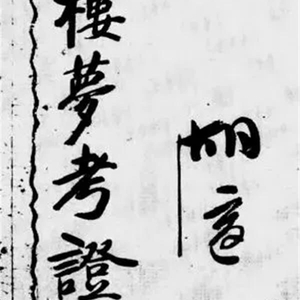 樓夢考證
胡適